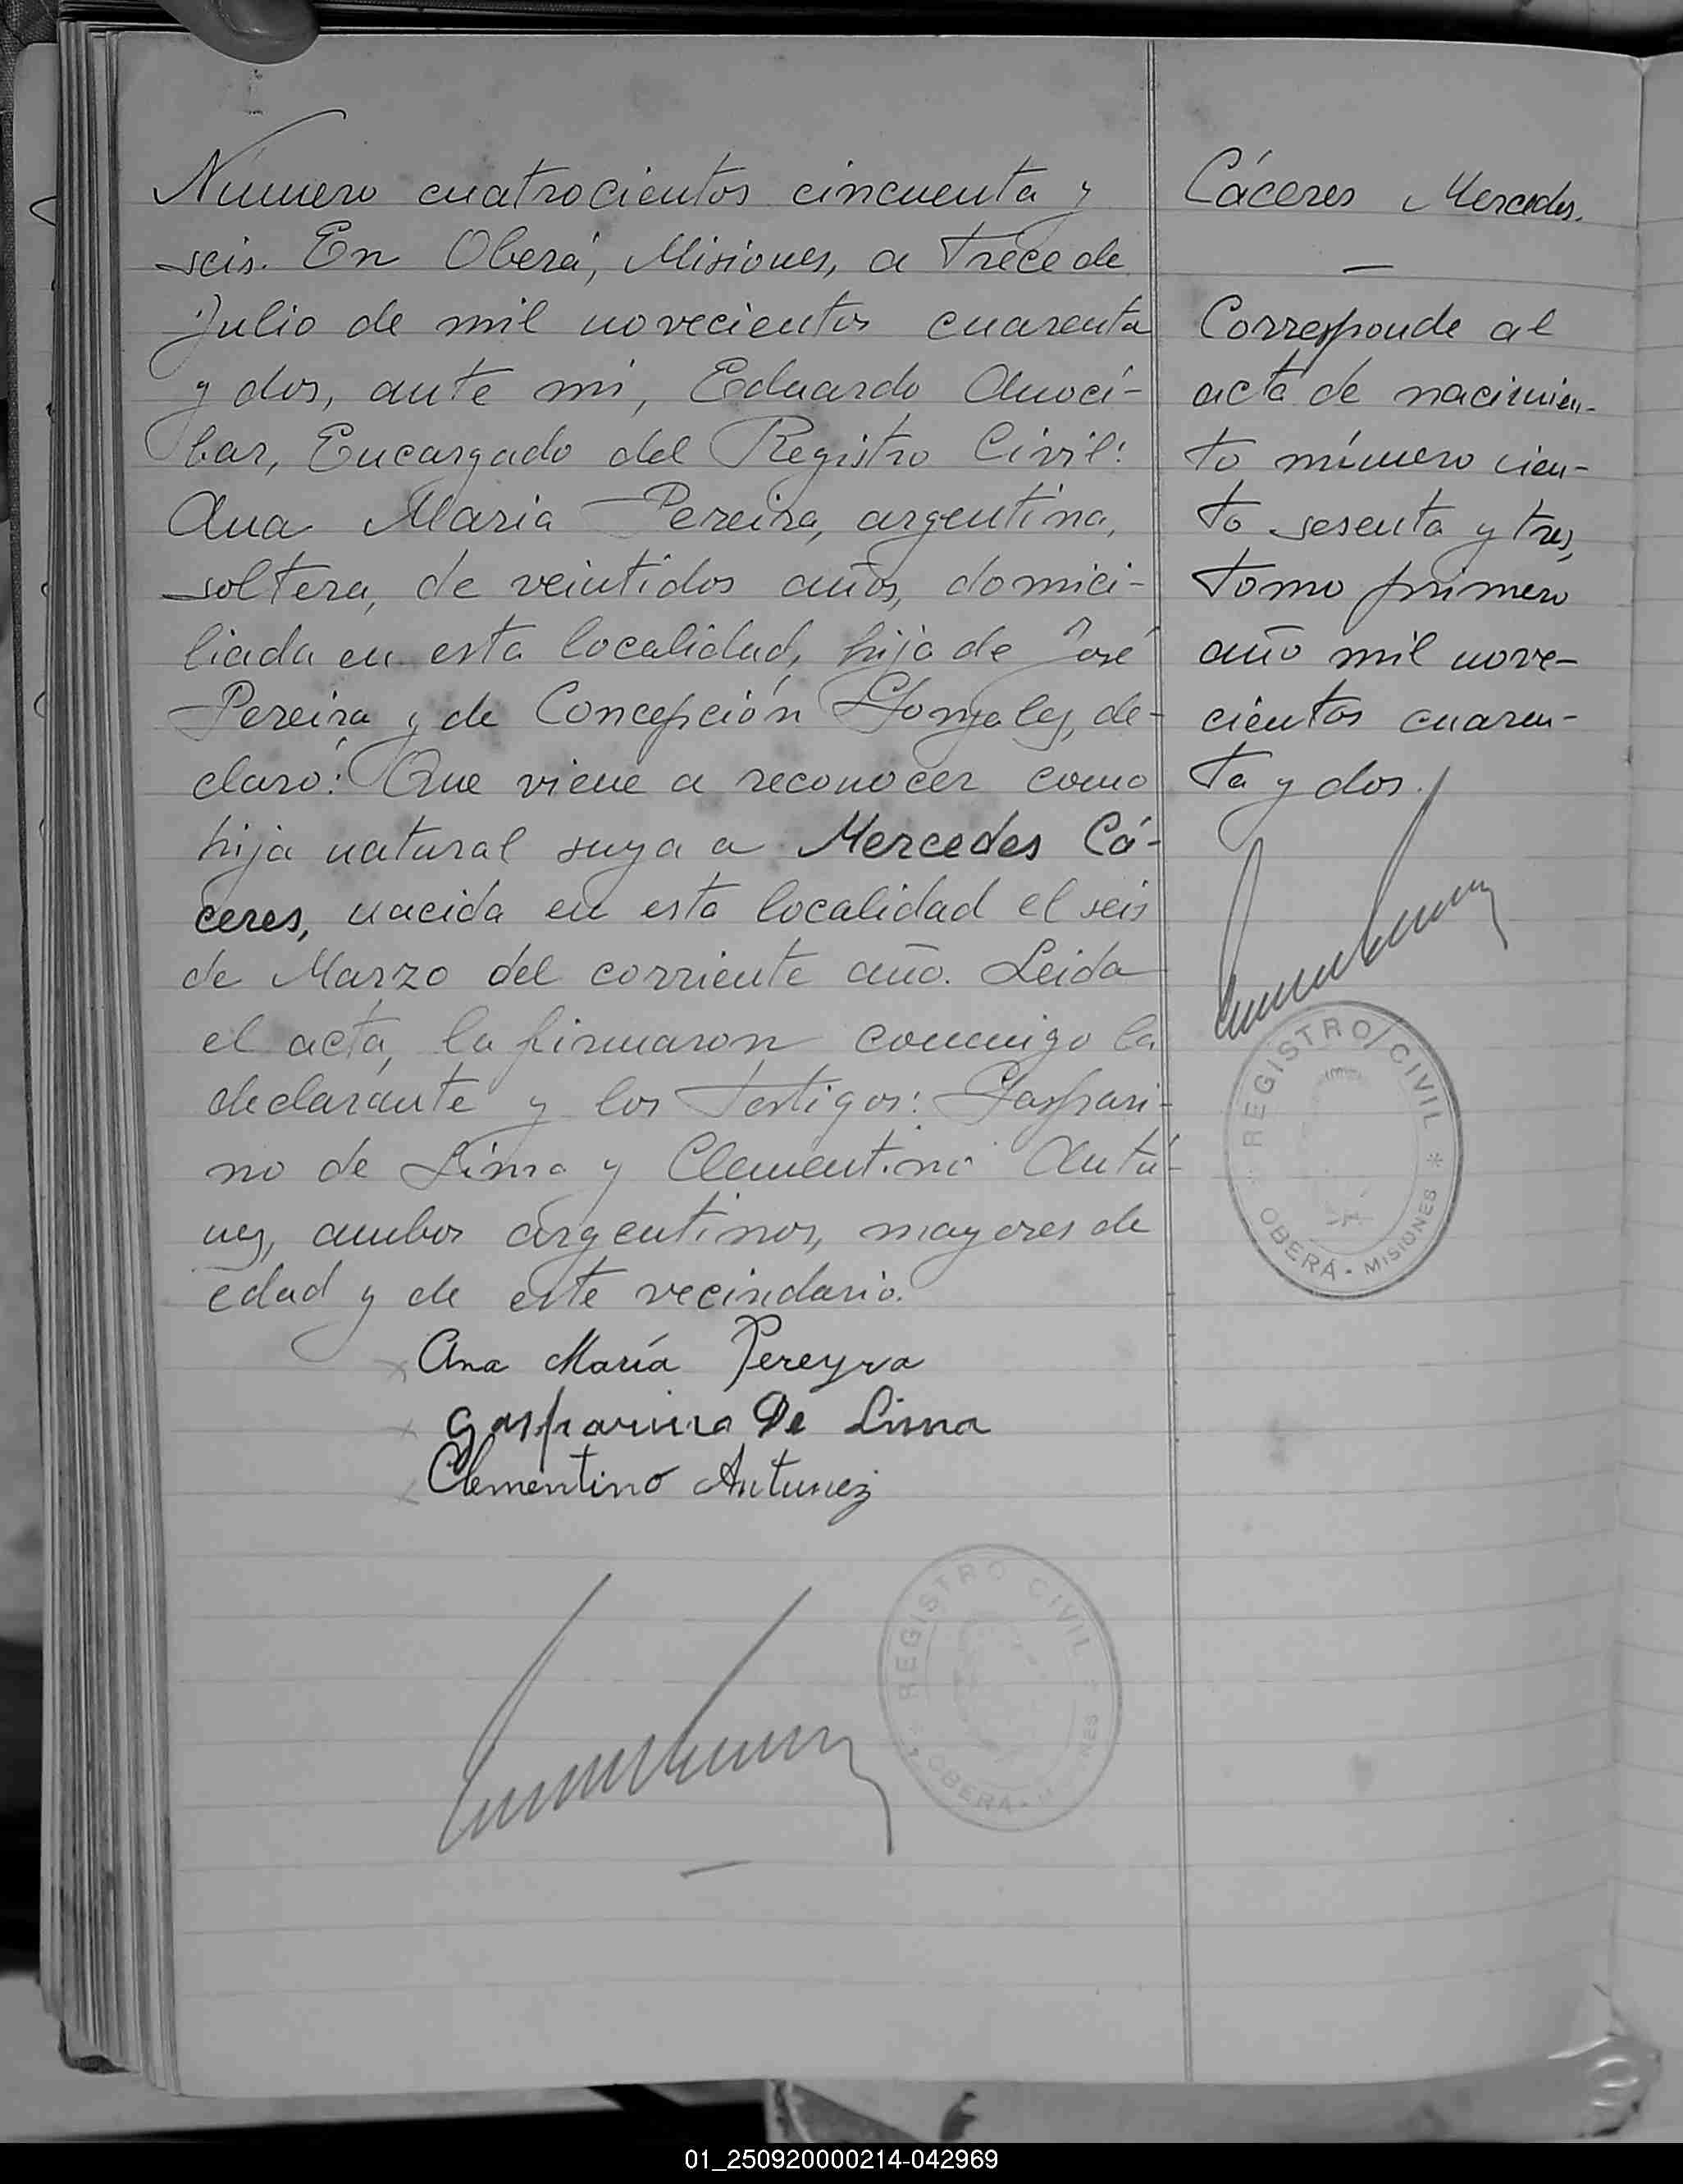 Número cuatrocientos cincuenta y
seis. En Oberá, Misiones, a trece de
Julio de mil novecientos cuarenta
y dos, ante mi, Eduardo Anoci-
bar, Encargado del Registro Civil:
Ana Maria Pereira, argentina,
soltera, de veintidos años, domici-
liada en esta localidad, hija de José
Pereira y de Concepción Gonzalez, de-
claró: Que viene a reconocer como
hija natural suya a Mercedes Cá-
ceres, nacida en esta localidad el seis
de Marzo del corriente año. Leida
el acta, la firmaron conmigo la
declarante y los testigos: Gaspari-
no de Lima y Clementino Antú-
nez, ambos argentinos, mayores de
edad y de este vecindario.
Ana María Pereyra
Gasparino De Lima
Clementino Antunez
REGISTRO CIVIL
OBERÁ -
Cáceres Mercedes.
—
Corresponde al
acta de nacimien-
to número cien-
to sesenta y tres,
tomo primero
año mil nove-
cientos cuaren-
ta y dos.
REGISTRO CIVIL
* OBERÁ - MISIONES *
01_250920000214-042969